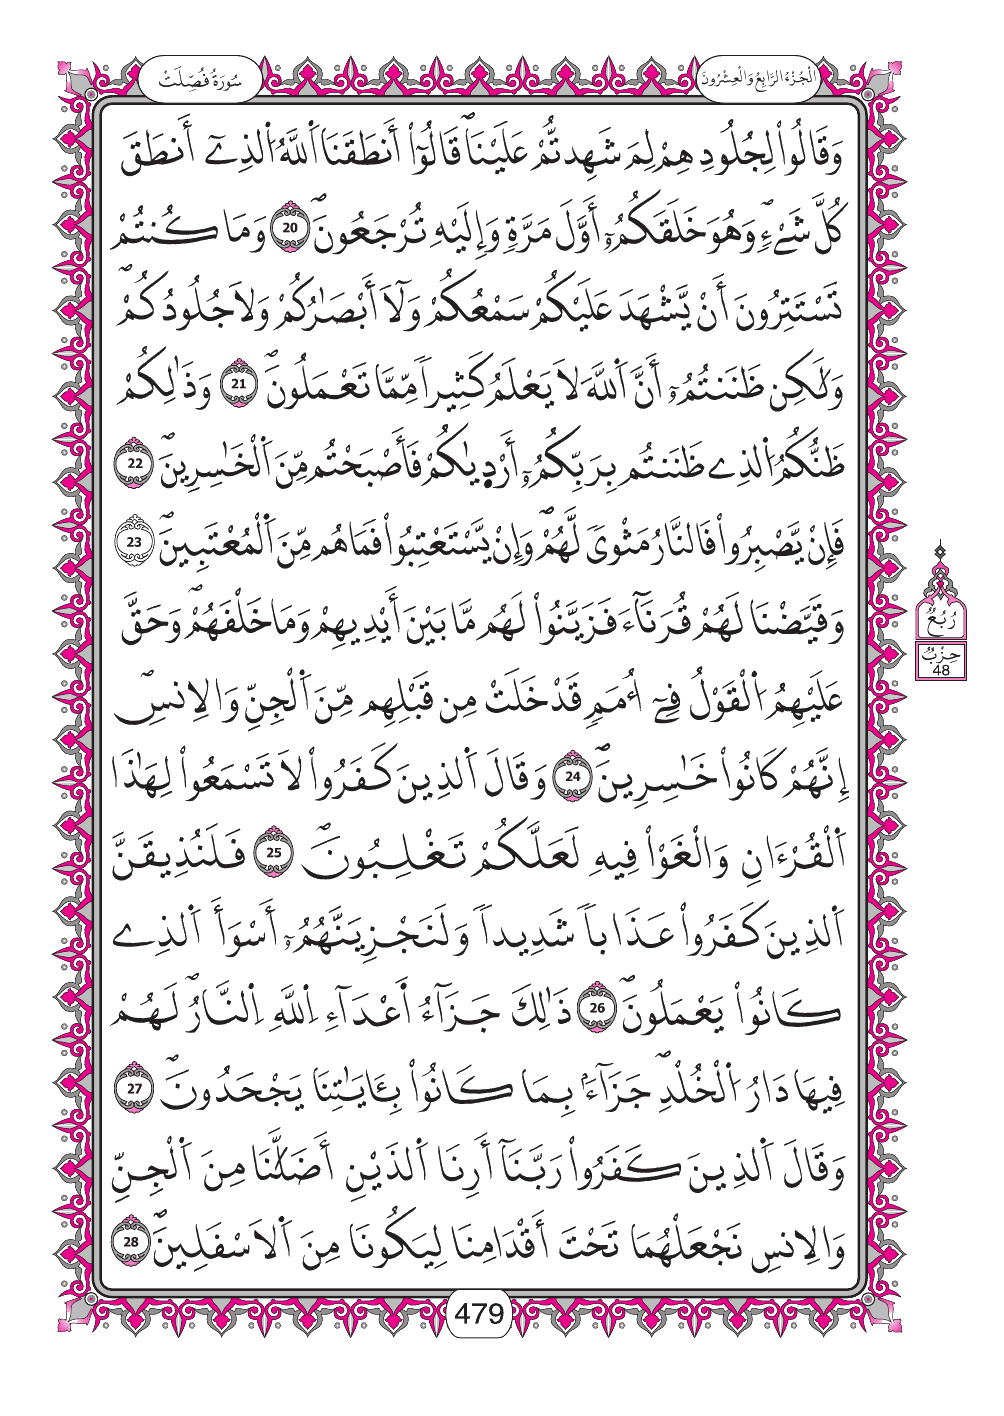 الْجُزْءُ الرَّابِعُ وَالْعِشْرُونَ
سُورَةُ فُصِّلَتْ
وَقَالُواْ لِجُلُودِهِمْ لِمَ شَهِدتُّمْ عَلَيْنَاۖ قَالُوٓاْ أَنطَقَنَا اَ۬للَّهُ اُ۬لذِےٓ أَنطَقَ
كُلَّ شَےْءٖۖ وَهُوَ خَلَقَكُمُۥٓ أَوَّلَ مَرَّةٖ وَإِلَيْهِ تُرْجَعُونَۖ 20 وَمَا كُنتُمْ
تَسْتَتِرُونَ أَنْ يَّشْهَدَ عَلَيْكُمْ سَمْعُكُمْ وَلَآ أَبْصَٰرُكُمْ وَلَا جُلُودُكُمْۖ
وَلَٰكِن ظَنَنتُمُۥٓ أَنَّ اَ۬للَّهَ لَا يَعْلَمُ كَثِيراٗ مِّمَّا تَعْمَلُونَۖ 21 وَذَٰلِكُمْ
ظَنُّكُمُ اُ۬لذِے ظَنَنتُم بِرَبِّكُمُۥٓ أَرْدٜيٰكُمْ فَأَصْبَحْتُم مِّنَ اَ۬لْخَٰسِرِينَۖ 22
فَإِنْ يَّصْبِرُواْ فَالنَّارُ مَثْويٗ لَّهُمْۖ وَإِنْ يَّسْتَعْتِبُواْ فَمَا هُم مِّنَ اَ۬لْمُعْتَبِينَۖ 23
وَقَيَّضْنَا لَهُمْ قُرَنَآءَ فَزَيَّنُواْ لَهُم مَّا بَيْنَ أَيْدِيهِمْ وَمَا خَلْفَهُمْۖ وَحَقَّ
عَلَيْهِمُ اُ۬لْقَوْلُ فِےٓ أُمَمٖ قَدْ خَلَتْ مِن قَبْلِهِم مِّنَ اَ۬لْجِنِّ وَالِانسِۖ
إِنَّهُمْ كَانُواْ خَٰسِرِينَۖ 24 وَقَالَ اَ۬لذِينَ كَفَرُواْ لَا تَسْمَعُواْ لِهَٰذَا
اَ۬لْقُرْءَانِ وَالْغَوْاْ فِيهِ لَعَلَّكُمْ تَغْلِبُونَۖ 25 فَلَنُذِيقَنَّ
اَ۬لذِينَ كَفَرُواْ عَذَاباٗ شَدِيداٗ وَلَنَجْزِيَنَّهُمُۥٓ أَسْوَأَ اَ۬لذِے
كَانُواْ يَعْمَلُونَۖ 26 ذَٰلِكَ جَزَآءُ اَعْدَآءِ اِ۬للَّهِ اِ۬لنَّارُۖ لَهُمْ
فِيهَا دَارُ اُ۬لْخُلْدِۖ جَزَآءَۢ بِمَا كَانُواْ بِـَٔايَٰتِنَا يَجْحَدُونَۖ 27
وَقَالَ اَ۬لذِينَ كَفَرُواْ رَبَّنَآ أَرِنَا اَ۬لذَيْنِ أَضَلَّٰنَا مِنَ اَ۬لْجِنِّ
وَالِانسِ نَجْعَلْهُمَا تَحْتَ أَقْدَامِنَا لِيَكُونَا مِنَ اَ۬لَاسْفَلِينَۖ 28
رُبُعُ
حِزْبُ
48
479